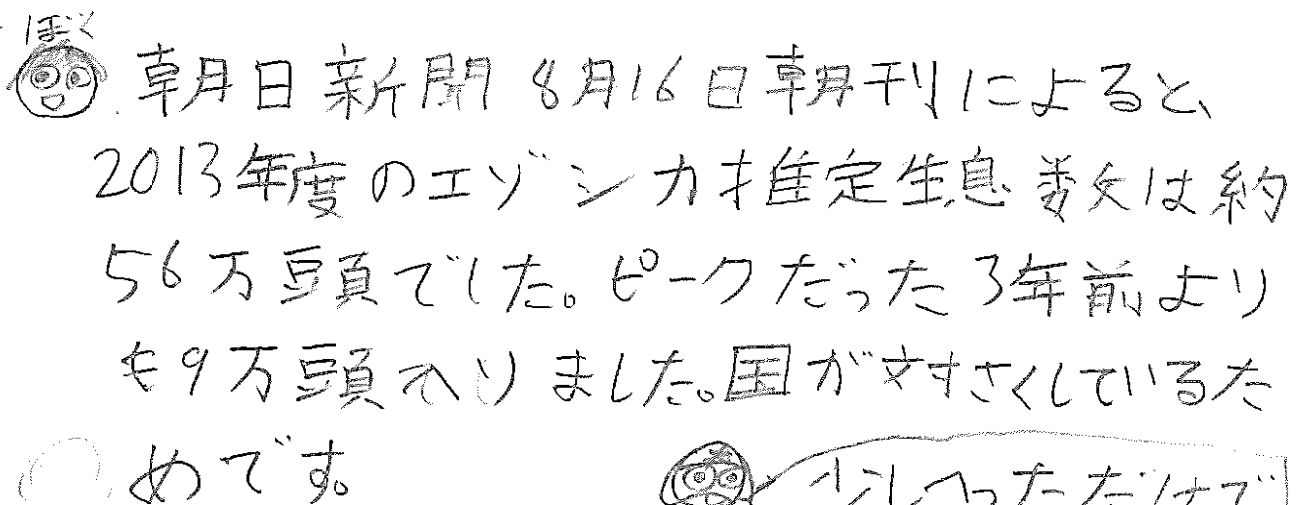 ぼく
朝日新聞8月16日朝刊によると、
2013年度のエゾシカ推定生息数は約
56万頭でした。ピークだった3年前より
も9万頭へりました。国が対さくしているた
めです。
少しへっただけで